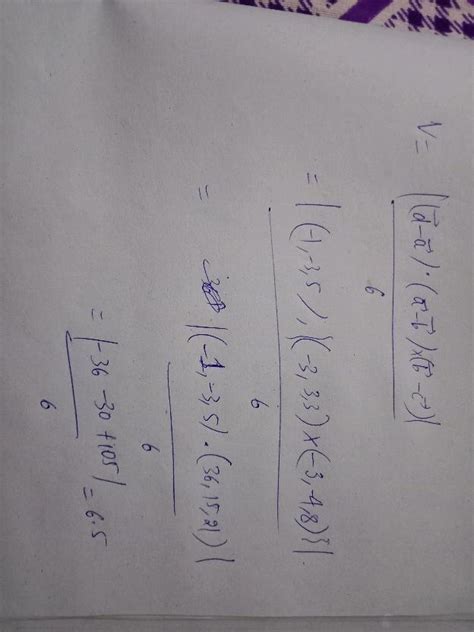 V = |(d⃗-a⃗)·(a⃗-b⃗)×(b⃗-c⃗)|
6
= |(-1,-3,5).{(-3,3,3)×(-3,-4,8)}|
6
= |(-1,-3,5).(36,15,21)|
6
= |-36-30+105| = 6.5
6